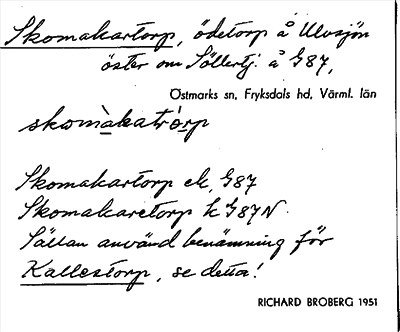 Skomakartorp, ödetorp å Ulvsjön
öster om Söllertj. å G87,
Östmarks sn, Fryksdals hd, Värml. län
skomàkatró̱rp
Skomakartorp ek, G87
Skomakaretorp h G87N
Sällan använd benämning för
Kallestorp, se detta!
RICHARD BROBERG 1951